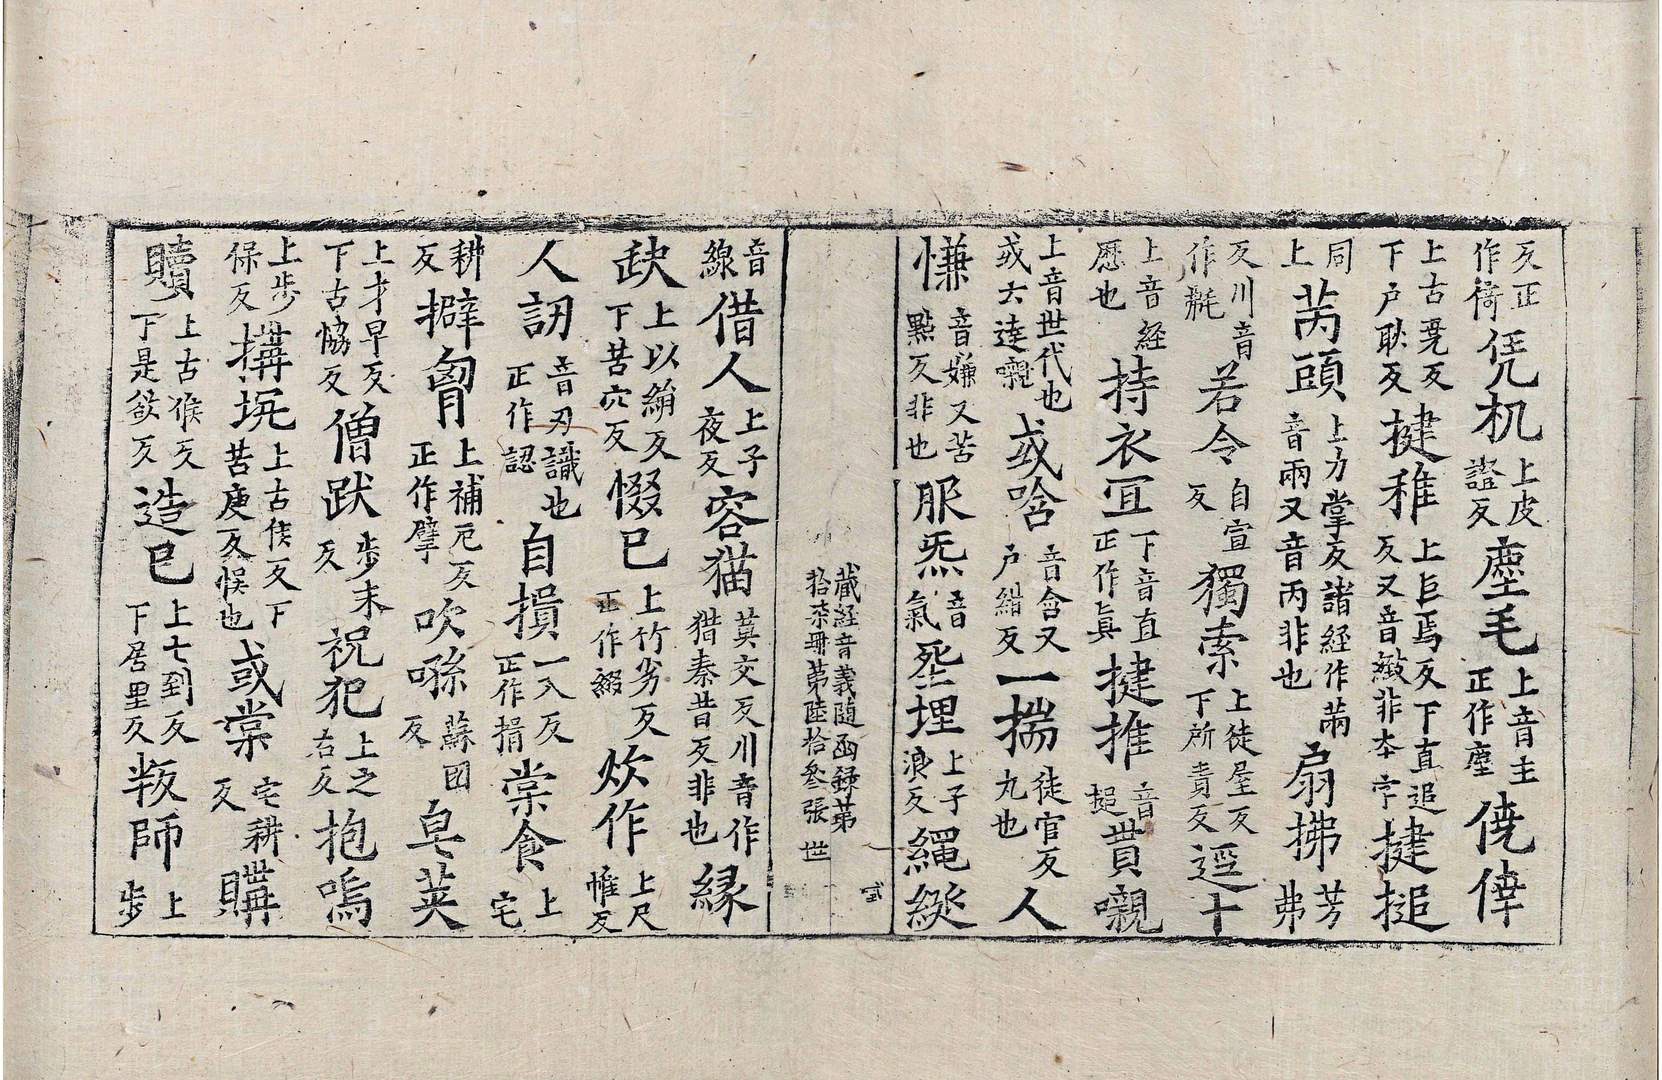 反正作犄凭机上皮證反塵毛上音主正作麈僥倖
上古堯反下户耿反揵稚上巨焉反下直追反又音緻非夲字揵搥
同上苪頭上力掌反諸經作䓣音兩又音丙非也扇拂芳弗
反川音作㲨若令自宣反獨索上徒屋反下所責反逕十
上音経歷也持衣冝下音直正作真揵推音搥貲嚫
上音世代也或大達嚫或唅音含又户紺反一揣徒官反九也人
慊音嫌又苦點反非也服炁音氣坙埋上子浪反繩縱
藏經音義随函録苐
拾柒冊苐陸拾叄張 世
音線借人上子夜反容猫莫交反川音作猎秦昔反非也緣
䏐上以絹反下苦穴反惙已上竹劣反正作綴炊作上尺惟反
人訒音刃識也正作認自損一入反正作揖棠食上宅
耕反擗䏷上補厄反正作擘吹㗜蘇困反皂莢
上才早反下古恊反僧跃步末反祝犯上之右反抱嗚
上步保反搆埦上古侯反下苦庚反悮也或棠宅耕反購
贖上古候反下是欲反造巳上七到反下居里反叛師上步